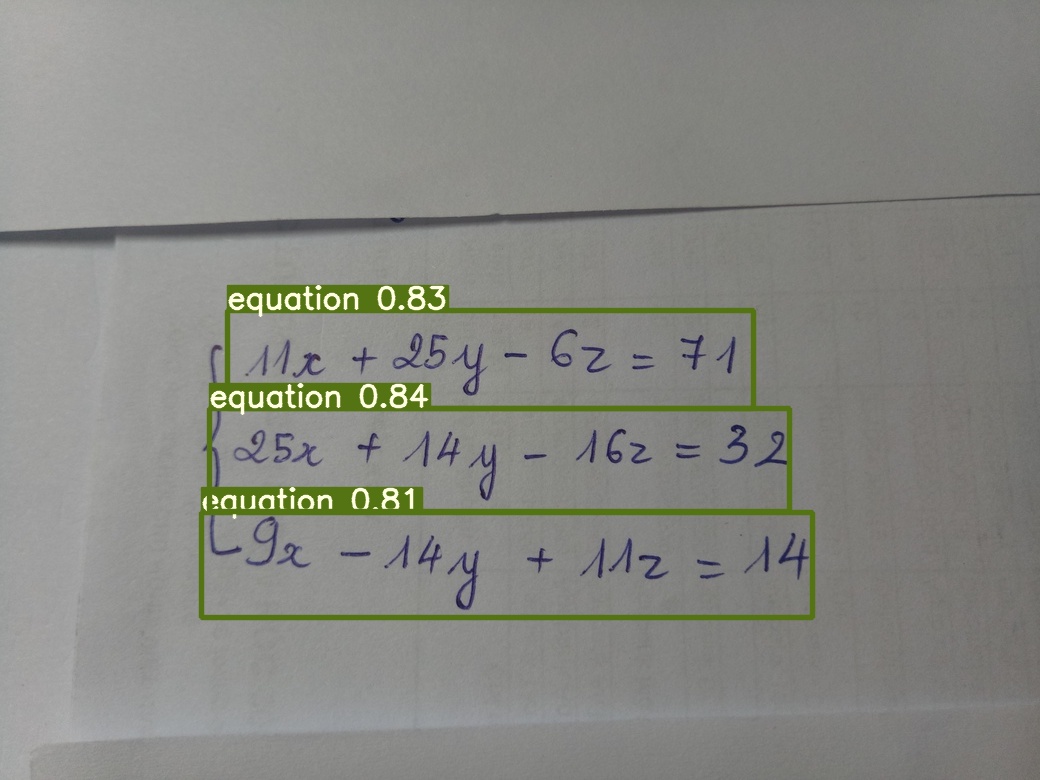 equation 0.83
11x + 25y - 6z = 71
equation 0.84
25x + 14y - 16z = 32
equation 0.81
9x - 14y + 11z = 14